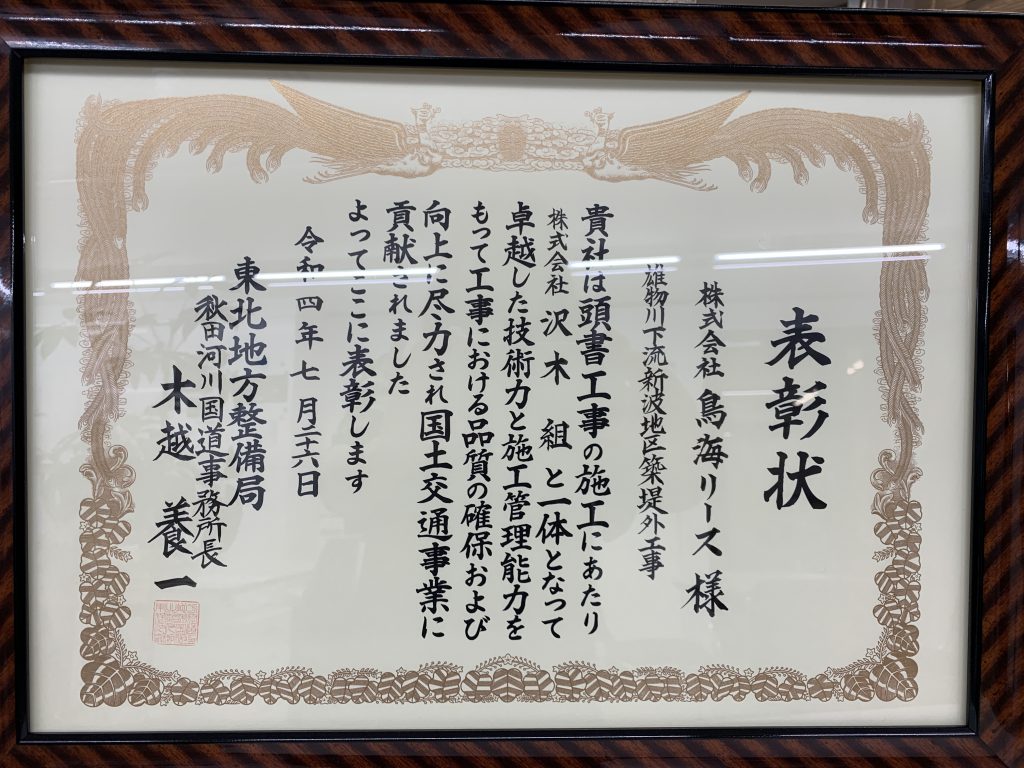 表彰状
株式会社 鳥海リース 様
雄物川下流新波地区築堤外工事
貴社は頭書工事の施工にあたり
株式会社 沢木組と一体となって
卓越した技術力と施工管理能力を
もって工事における品質の確保および
向上に尽力され国土交通事業に
貢献されました
よってここに表彰します
令和四年七月二十六日
東北地方整備局
秋田河川国道事務所長
木越養一